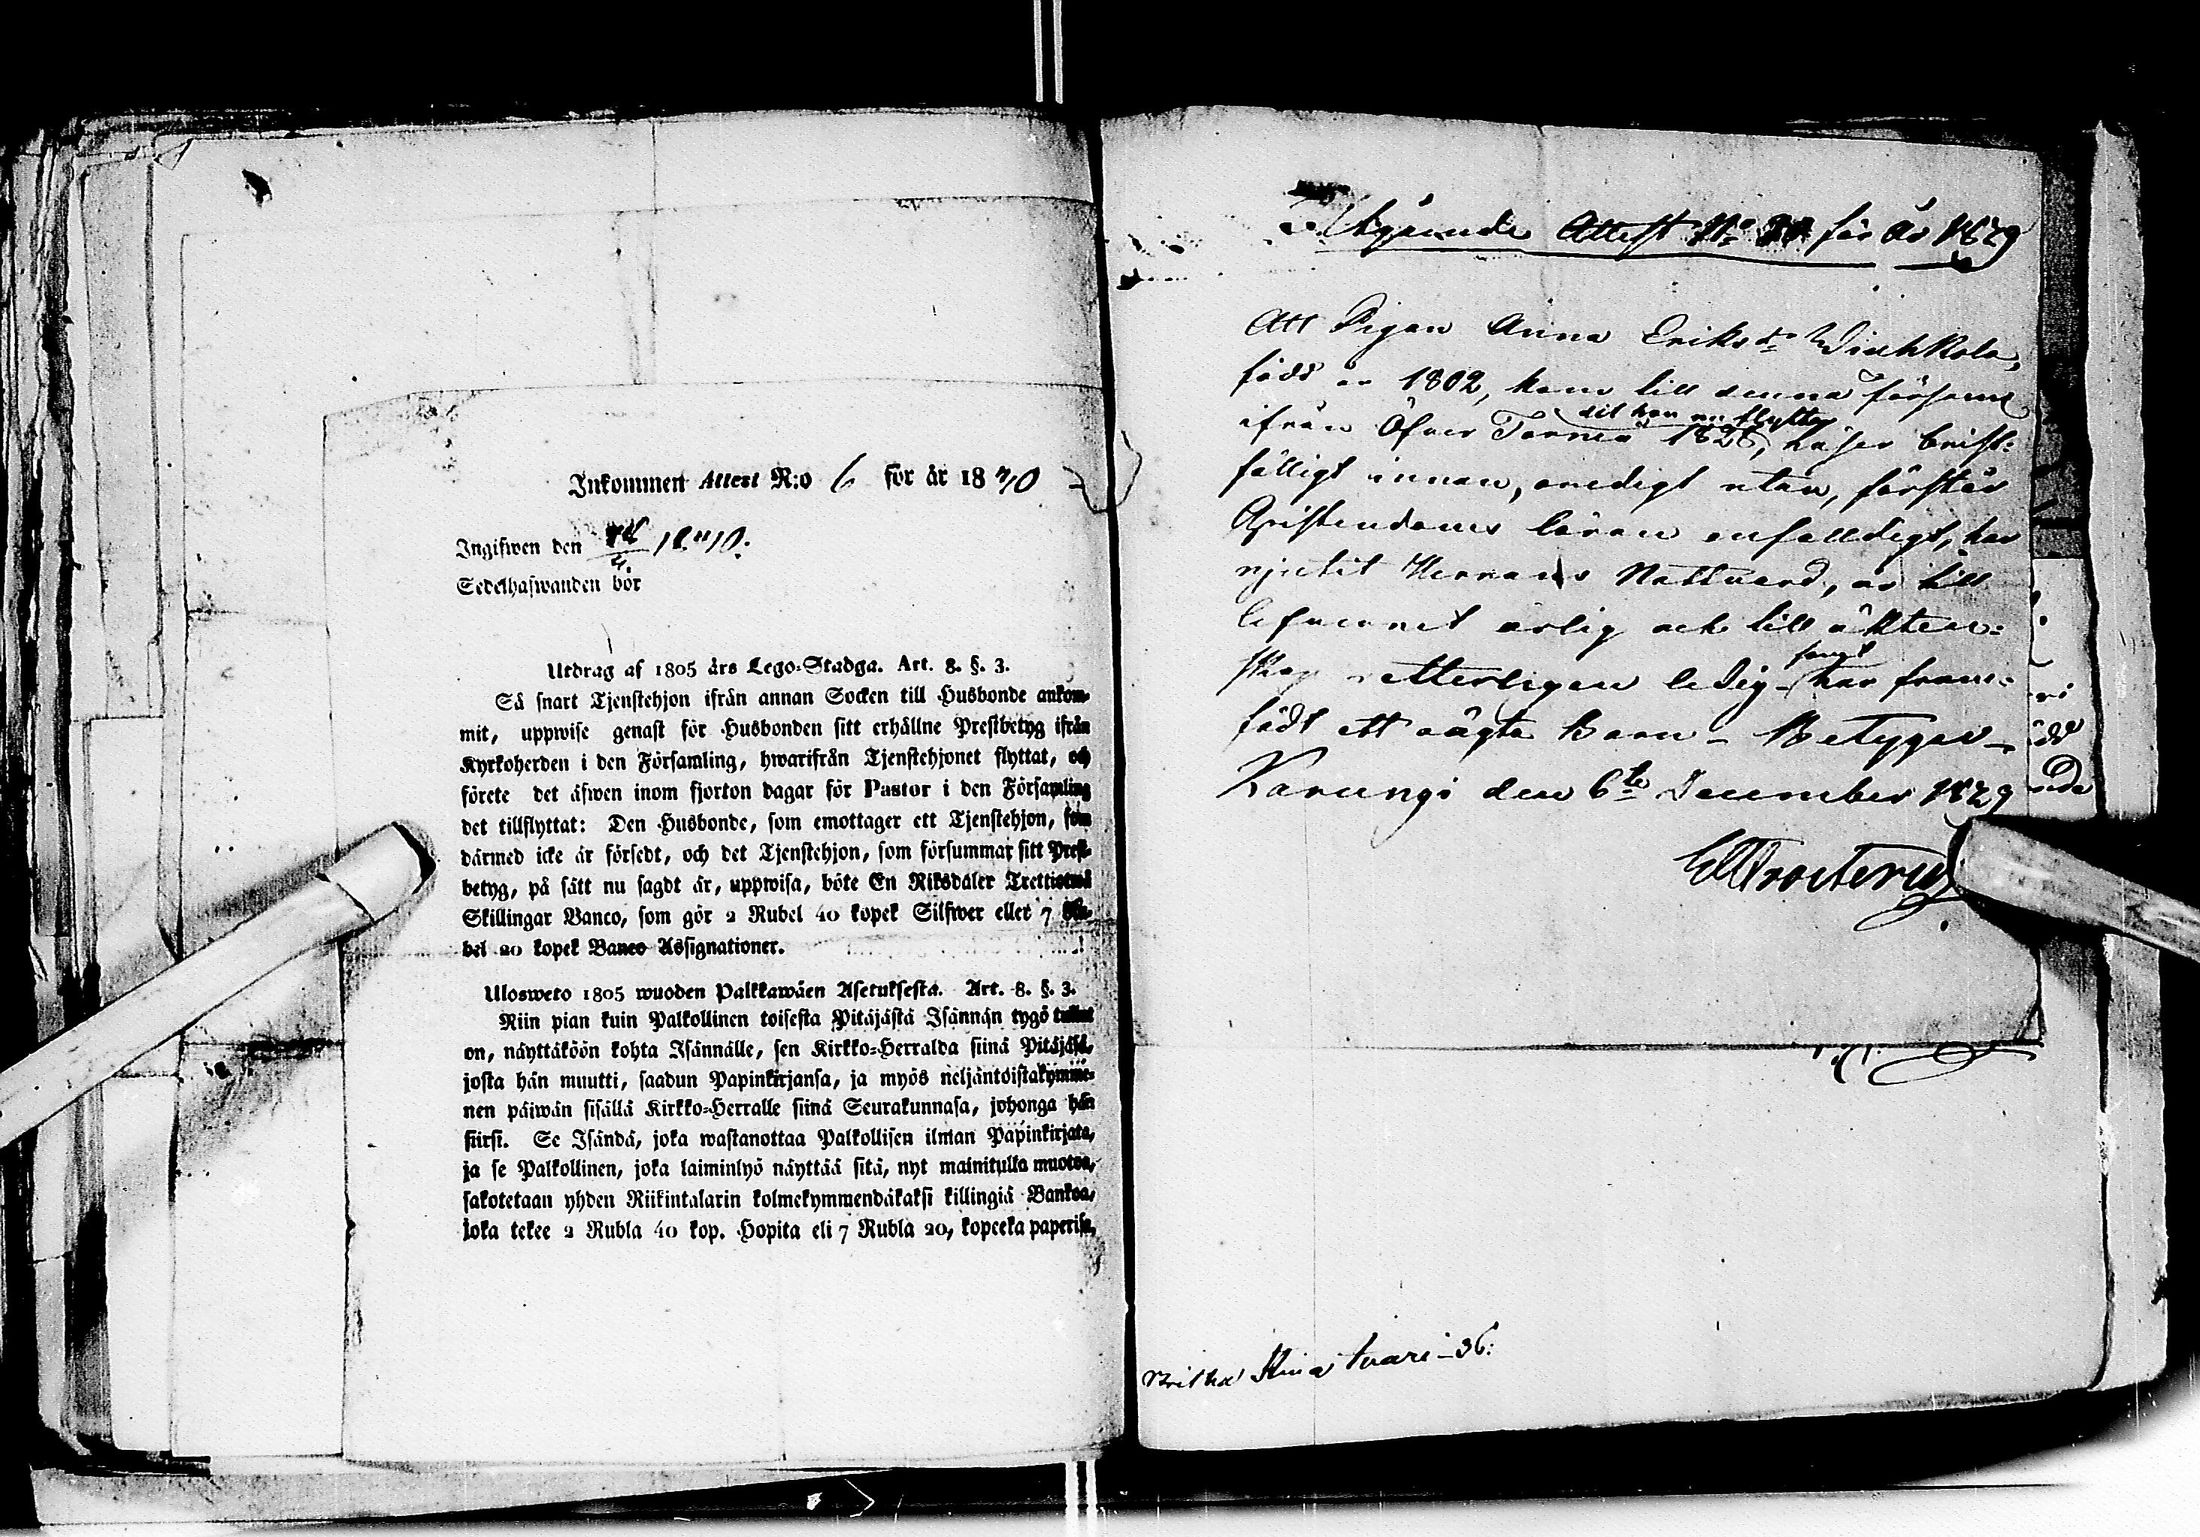 Inkommen Attest N:o 6 för år 1840
Ingifwen den 18 40.
Sedelhafwanden bör
Utdrag af 1805 års Lego-Stadga. Art. 8. §. 3.
Så snart Tjenstehjon ifrån annan Socken till Husbonde ankom-
mit, uppwise genast för Husbonden sitt erhållne Prestbetyg ifrån
Kyrkoherden i den Församling, hwarifrån Tjenstehjonet flyttat, och
förete det äfwen inom fjorton dagar för Pastor i den Församling
det tillflyttat: Den Husbonde, som emottager ett Tjenstehjon, som
därmed icke är försedt, och det Tjenstehjon, som försummar sitt Prest-
betyg, på sätt nu sagdt är, uppwisa, böte En Riksdaler Trettiotwå
Skillingar Banco, som gör 2 Rubel 40 kopek Silfwer eller 7 Ru-
bel 20 kopek Banco Assignationer.
Ulosweto 1805 wuoden Palkkawäen Asetuksesta. Art. 8. §. 3.
Niin pian kuin Palkollinen toisesta Pitäjästä Isännän tygö tullut
on, näyttäköön kohta Isännälle, sen Kirkko-Herralda siinä Pitäjäsä,
josta hän muutti, saadun Papinkirjansa, ja myös neljäntoistakymme-
nen päiwän sisällä Kirkko-Herralle siinä Seurakunnasa, johonga hän
siirsi. Se Isändä, joka wastanottaa Palkollisen ilman Papinkirjata,
ja se Palkollinen, joka laiminlyö näyttää sitä, nyt mainitulla muotoa,
sakotetaan yhden Riikintalarin kolmekymmendäkaksi killingiä Bankoa,
joka tekee 2 Rubla 40 kop. Hopita eli 7 Rubla 20, kopeeka paperisa,
Utgående Attest No för år 1829
Att Pigan Anna Eriksdr
född år 1802, kom till denna församl
dit hon nu flyttar
ifrån Öfver Torneå 1828, läser brist-
fälligt innan, oredigt utan, förstår
Christendoms läran enfalldigt, har
njutit Herrans Nattvard, är till
lefvernet ärlig och till äkten-
samt
skap vetterligen ledig har fram-
födt ett oägta barn - Betygar
Karungi den 6te December 1829
Britha Stina Tuari - 36: